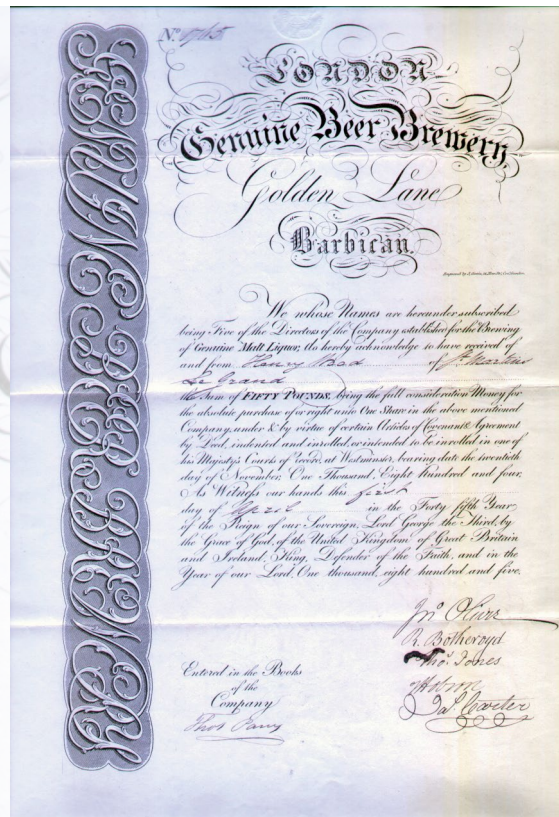 No.
LONDON
Genuine Beer Brewery,
Golden Lane
Barbican.
We whose Names are hereunder subscribed
being Five of the Directors of the Company established for the Brewing
of Genuine Malt Liquor, do hereby acknowledge to have received of
and from Henry of St. Martins
Le Grand
the Sum of FIFTY POUNDS, being the full consideration Money for
the absolute purchase of or right unto One Share in the above mentioned
Company, under & by virtue of certain Articles of Covenant & Agreement
by Deed, indented and inrolled, or intended to be inrolled in one of
his Majesty's Courts of Record, at Westminster, bearing date the twentieth
day of November, One Thousand, Eight Hundred and four.
As Witness our hands this first
day of April in the Forty fifth Year
of the Reign of our Sovereign Lord George the Third, by
the Grace of God, of the United Kingdom of Great Britain
and Ireland, King, Defender of the Faith, and in the
Year of our Lord, One thousand, eight hundred and five.
R. Botheroyd
Thos. Jones
Jas. Carter
Entered in the Books
of the
Company
GENUINE BEER BREWERY